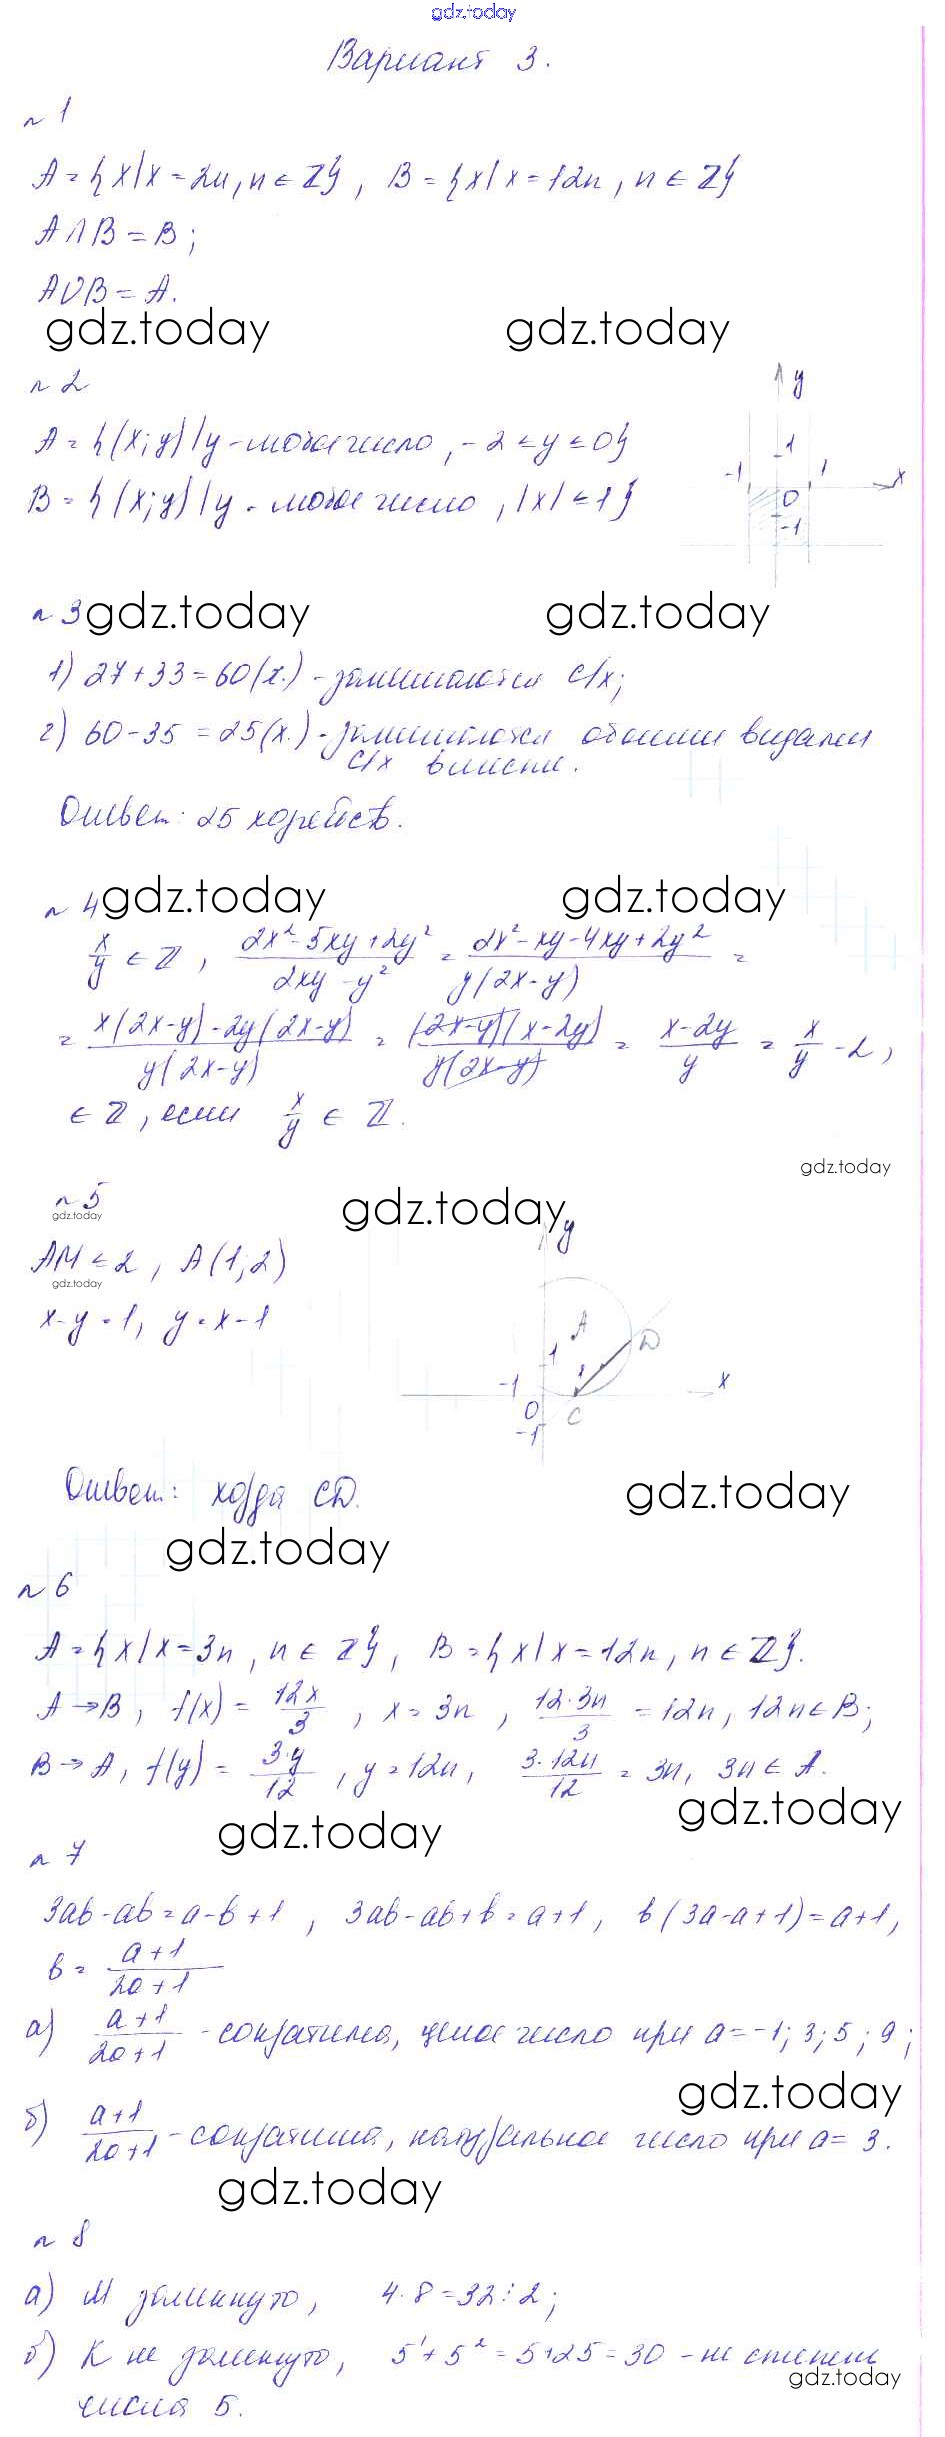 gdz.today
Вариант 3.
n 1
A = {x/x = 2n, n ∈ Z}, B = {x/x = 12n, n ∈ Z}
A∩B = B;
A∪B = A.
gdz.today gdz.today
n 2
y
A = {(x;y)/y - любое число, -2 ≤ y ≤ 0}
1
-1 1 x
B = {(x;y)/y - любое число, |x| ≤ 1}
0
-1
n 3 gdz.today gdz.today
1) 27+33 = 60(x.) - занимаются с/х;
2) 60-35 = 25(x.) - занимаются обоими видами
с/х вместе.
Ответ: 25 хозяйств.
n 4 gdz.today gdz.today
x/y ∈ Z, (2x²-5xy+2y²)/(2xy-y²) = (2x²-xy-4xy+2y²)/(y(2x-y)) =
= (x(2x-y)-2y(2x-y))/(y(2x-y)) = ((2x-y)(x-2y))/(y(2x-y)) = (x-2y)/y = x/y - 2,
∈ Z, если x/y ∈ Z.
gdz.today
n 5 gdz.today
gdz.today
y
AM = 2, A(1;2)
gdz.today
x-y = 1, y = x-1
A
D
1
-1 1 x
0 C
-1
Ответ: хорда CD.
gdz.today
gdz.today
n 6
A = {x/x = 3n, n ∈ Z}, B = {x/x = 12n, n ∈ Z}.
A → B, f(x) = 12x/3, x = 3n, 12·3n/3 = 12n, 12n ∈ B;
B → A, f(y) = 3·y/12, y = 12n, 3·12n/12 = 3n, 3n ∈ A.
gdz.today gdz.today
n 7
3ab-ab = a-b+1, 3ab-ab+b = a+1, b(3a-a+1) = a+1,
b = (a+1)/(2a+1)
а) (a+1)/(2a+1) - сократима, целое число при a = -1; 3; 5; 9;
gdz.today
б) (a+1)/(2a+1) - сократима, натуральное число при a = 3.
gdz.today
n 8
а) M замкнуто, 4·8 = 32⋮2;
б) K не замкнуто, 5¹+5² = 5+25 = 30 - не степень
gdz.today
числа 5.